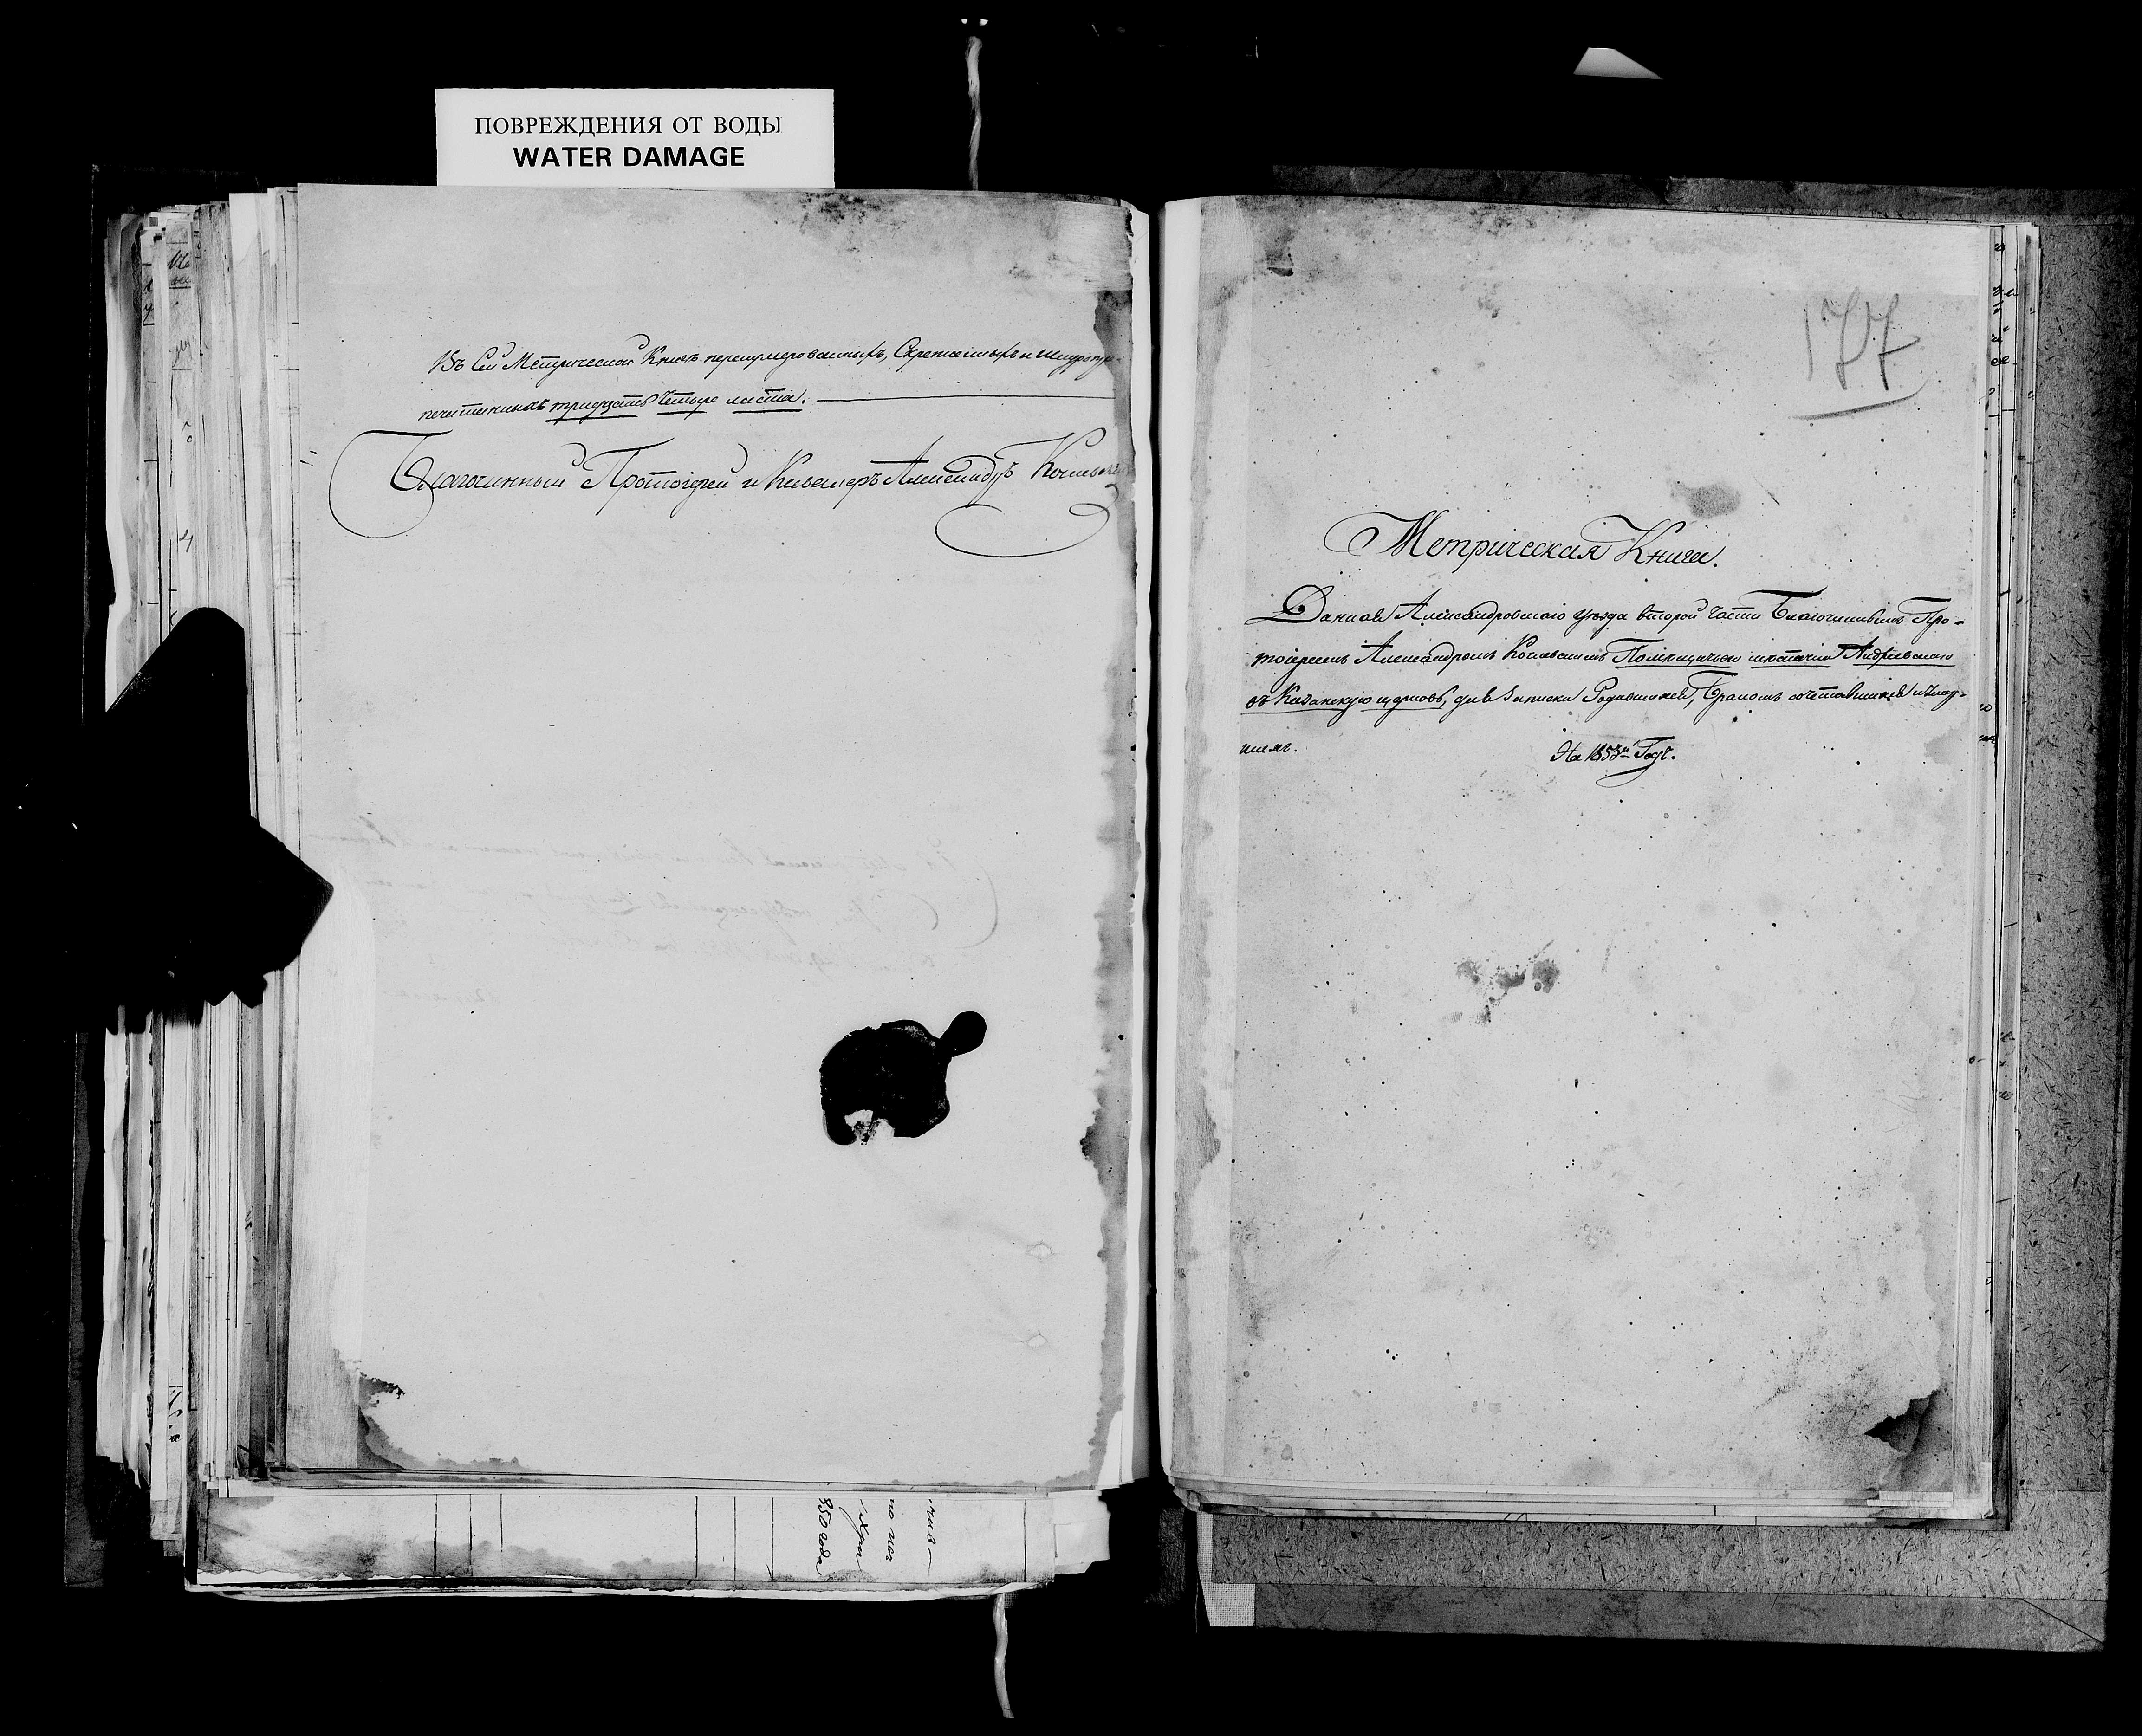 ПОВРЕЖДЕНИЯ ОТ ВОДЫ
WATER DAMAGE
Въ Сей Метрической Книге перенумерованныхъ, Скрепленныхъ и шнуропри-
печатанныхъ тридцать четыре листа.
Благочинный Протоіерей и Кавалеръ Александръ
177
Метрическая Книга.
Данная Александровскаго уезда второй части Благочиннымъ Про-
тоіереемъ Александромъ местечка Андреевскаго
въ Казанскую церковь, для записки Родившихся, Бракомъ сочетавшихся и Умер-
шихъ.
На 1853й Годъ.
850 года